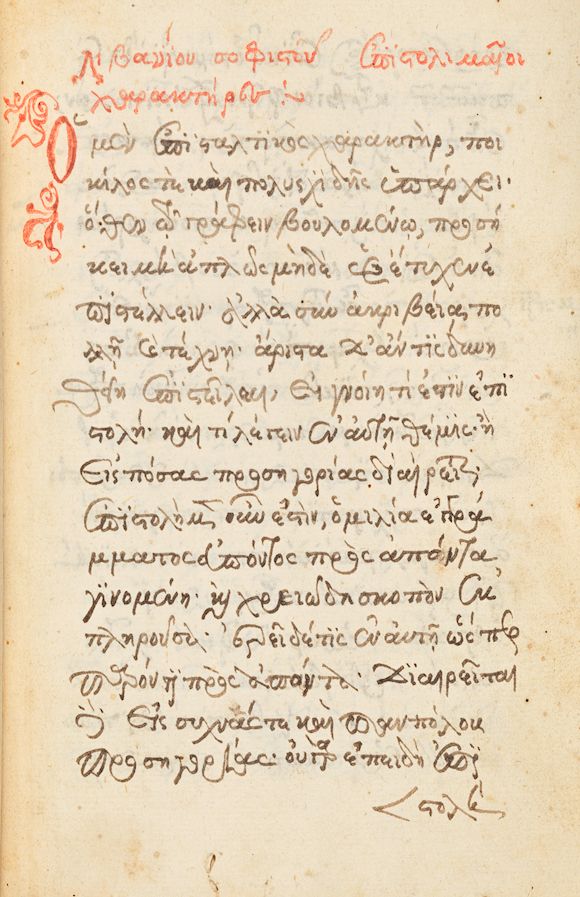 Λιβανίου σοφιστοῦ ἐπιστολιμαῖοι
χαρακτήρες :~
Ὁ μὲν ἐπισταλτικὸς χαρακτὴρ, ποι
κίλος τὲ καὶ πολυσχιδὴς ὑπάρχει·
ὅθεν τῷ γράφειν βουλομένῳ, προσή
κει μὴ ἁπλῶς μηδὲ ὡς ἔτυχεν ἐ
πιστέλλειν· ἀλλὰ σὺν ἀκριβεία πο
λλῆ καὶ τέχνη· ἄριστα δ' ἄν τις δυνη
θείη ἐπιστεῖλαι, εἰ γνοίη τί ἐστὶν ἐπι
στολή· καὶ τί λέγειν ἐν αὐτῇ θέμις· ἢ
εἰς πόσας προσηγορίας διαιρεῖται·
ἐπιστολὴ μὲν οὖν ἐστὶν, ὁμιλία ἐγγρά
μματος ἀπόντος πρὸς ἀπόντα
γινομένη· καὶ χρειώδη σκοπὸν ἐκ
πληροῦσα· ἐρεῖ δέ τις ἐν αὐτῇ ὥσπερ
παρόν ἢ πρὸς ἀπόντα· διαιρεῖται
δὲ εἰς συχνάς τε καὶ παμπόλας
προσηγορίας· οὐ γὰρ ἐπειδὴ ἐπι
στολὴ